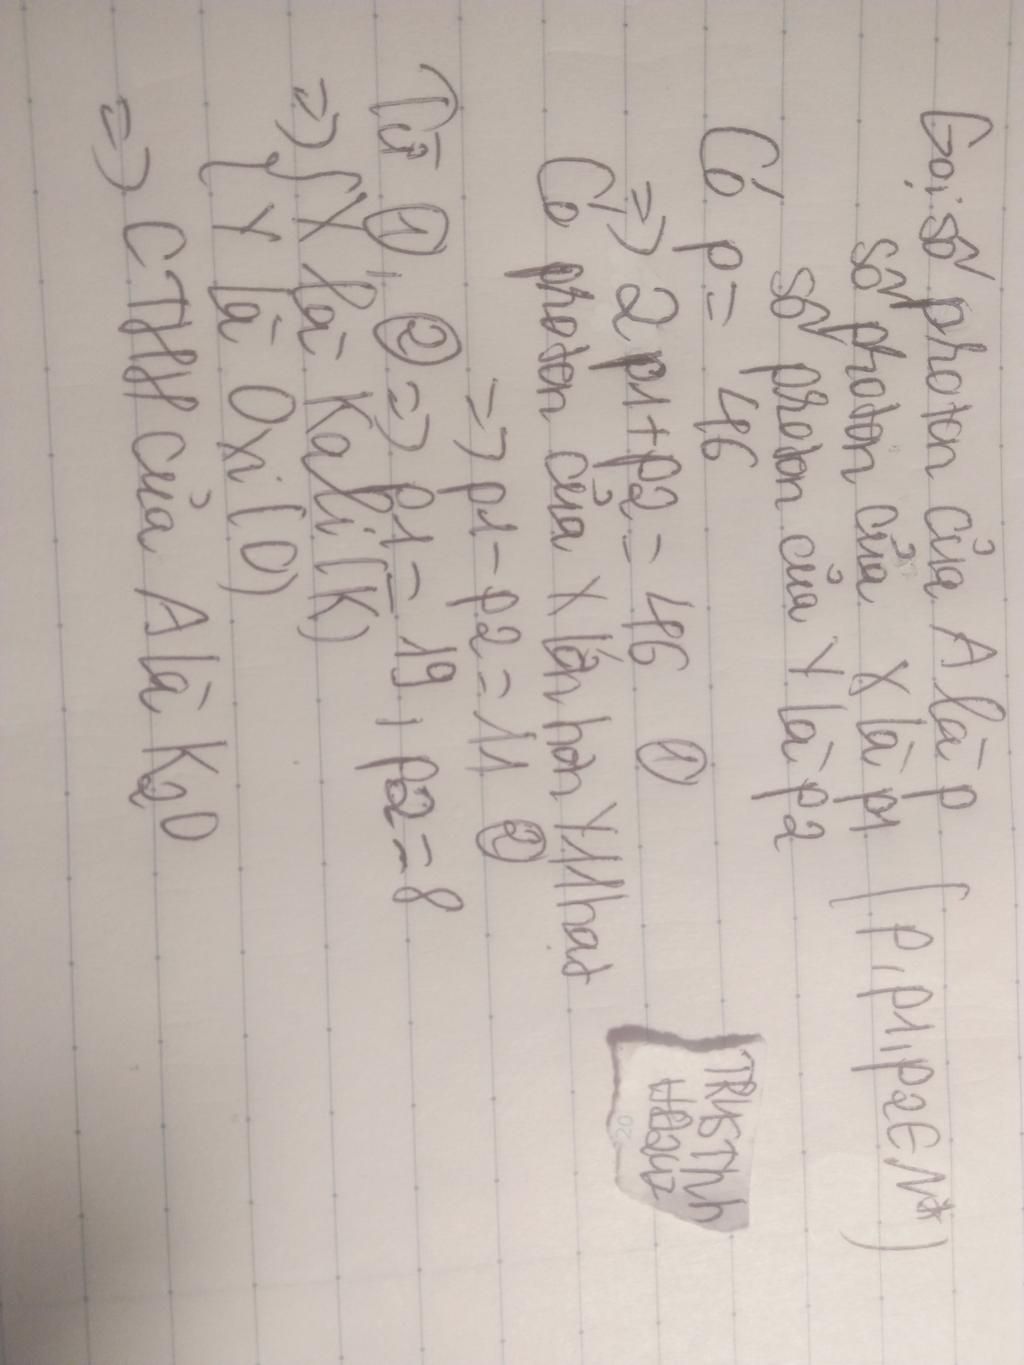 Gọi số proton của A là p
số proton của X là p1 ( p, p1, p2 ∈ N* )
số proton của Y là p2
Có p = 46
=> 2p1 + p2 = 46 ①
Có proton của X lớn hơn Y 11 hạt
=> p1 - p2 = 11 ②
Từ ①, ② => p1 = 19, p2 = 8
=> { X là Kali (K)
Y là Oxi (O)
=> CTHH của A là K2O